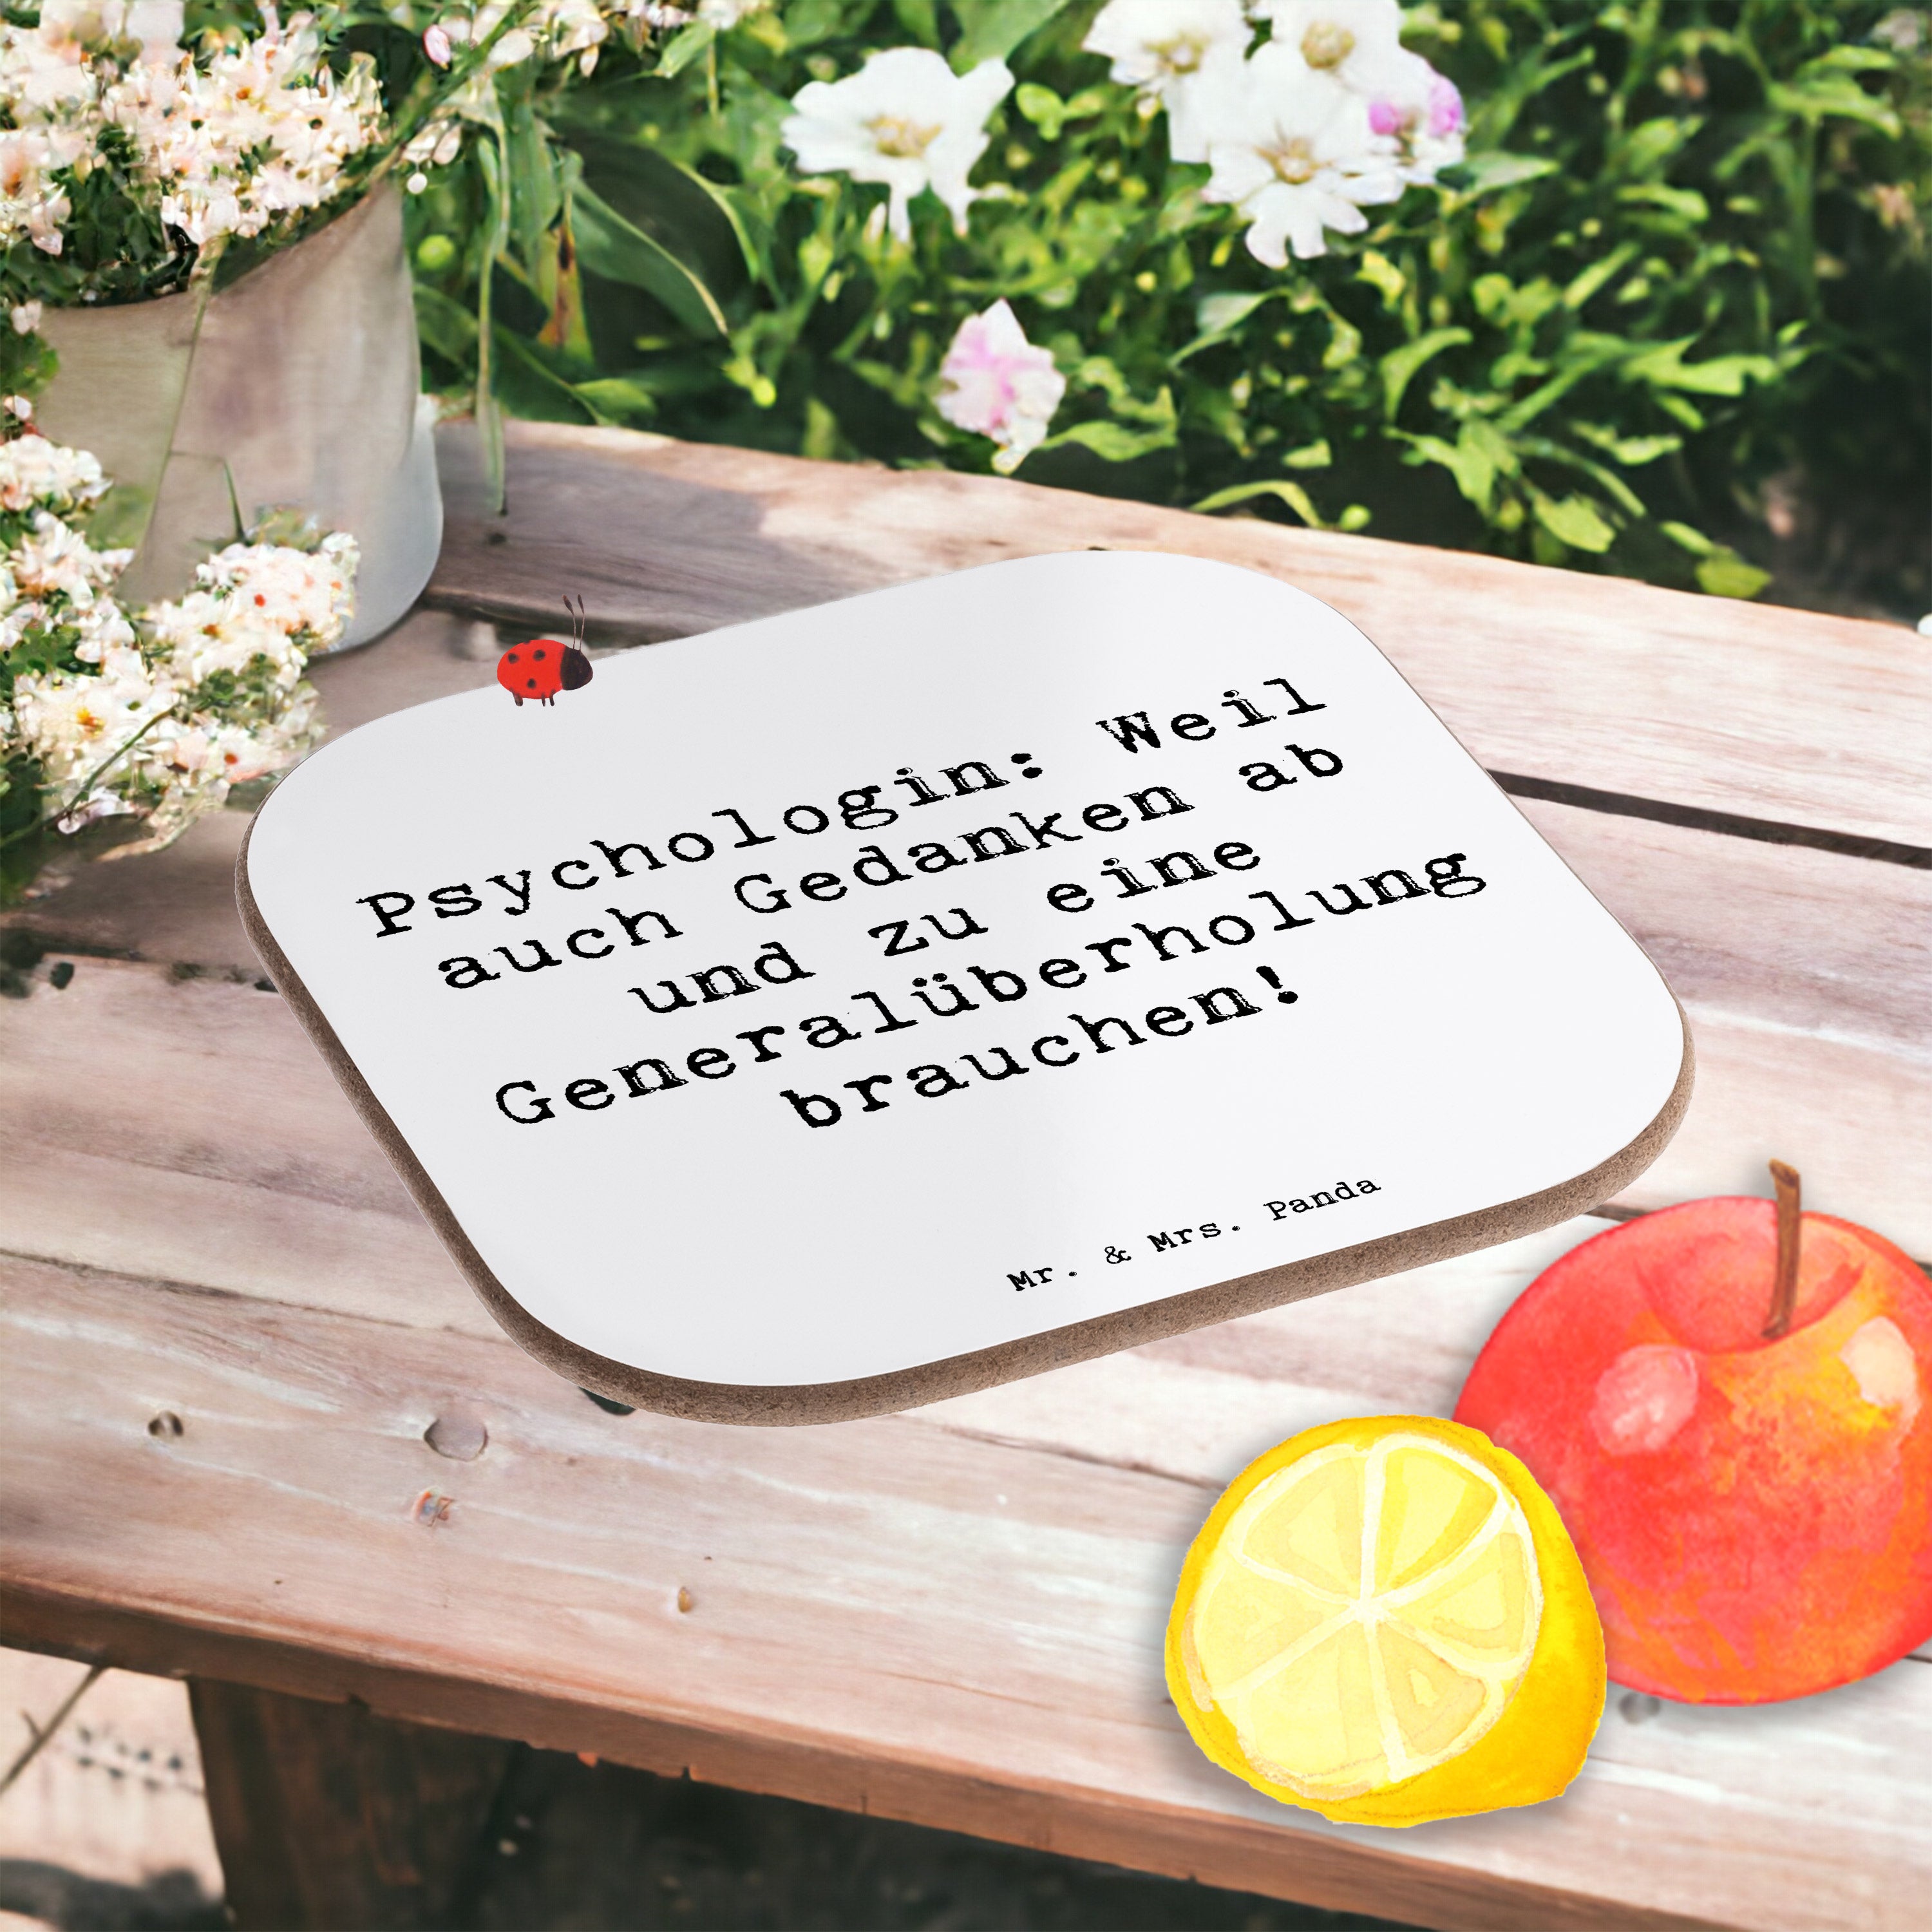 Psychologin: Weil
auch Gedanken ab
und zu eine
Generalüberholung
brauchen!
Mr. & Mrs. Panda